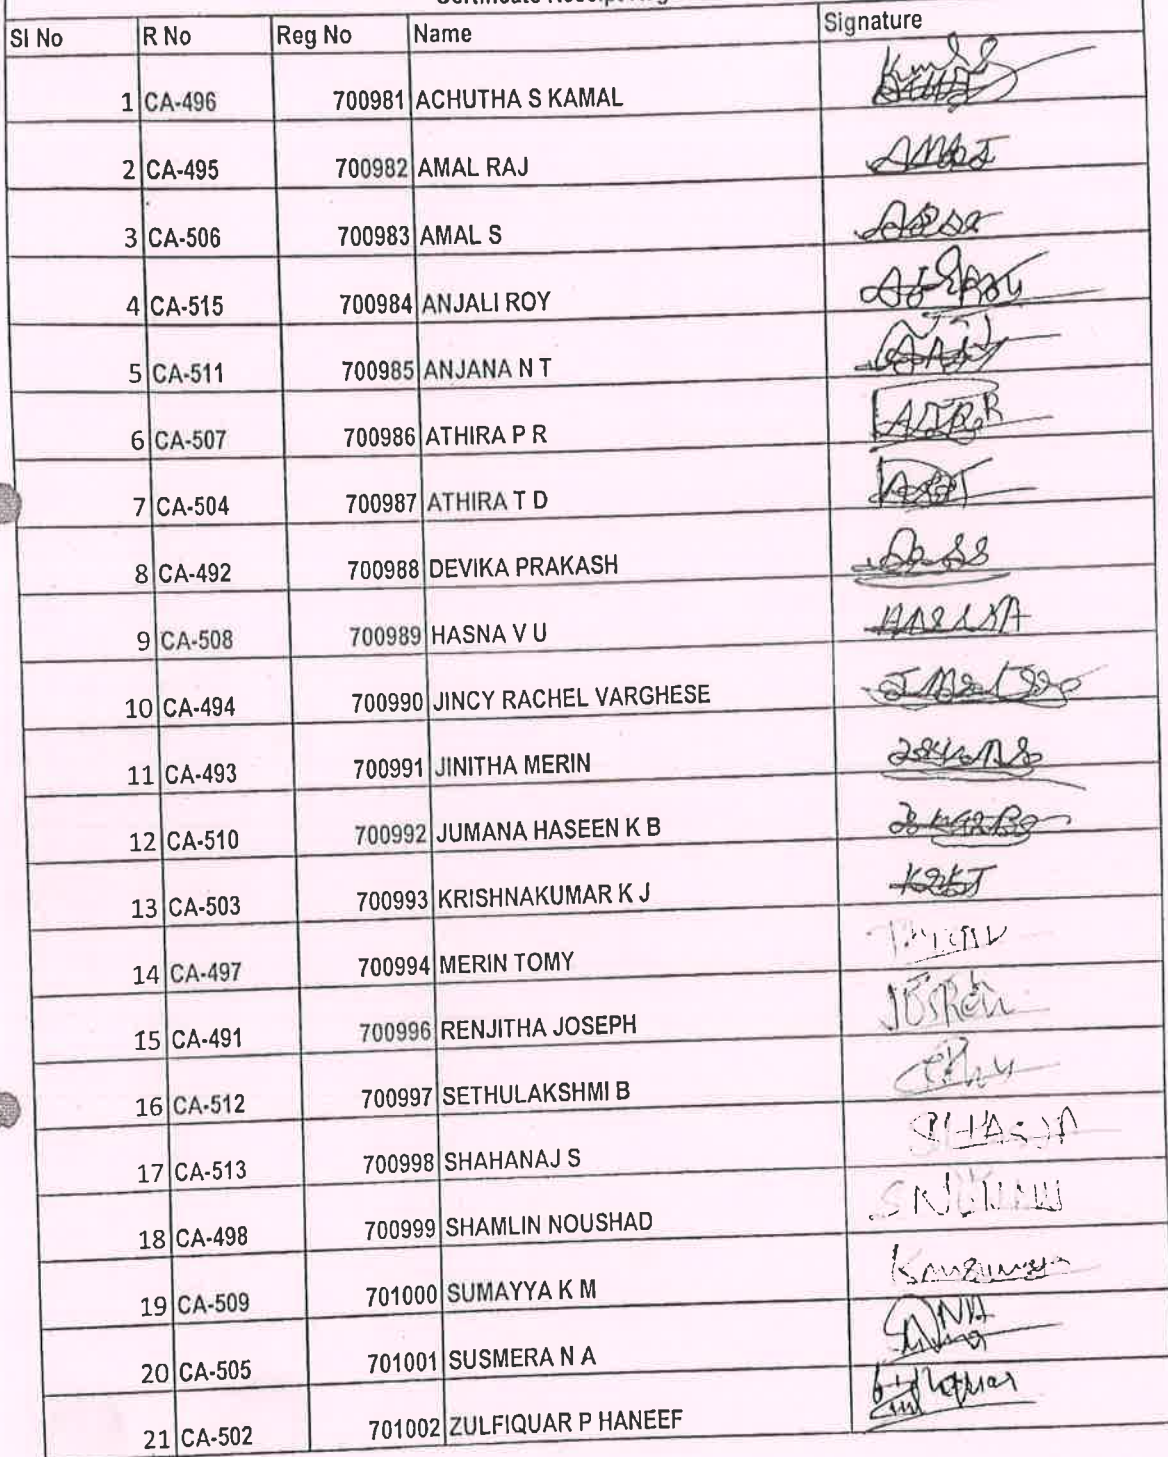 Sl No R No Reg No Name Signature
1 CA-496 700981 ACHUTHA S KAMAL
2 CA-495 700982 AMAL RAJ
3 CA-506 700983 AMAL S
4 CA-515 700984 ANJALI ROY
5 CA-511 700985 ANJANA N T
6 CA-507 700986 ATHIRA P R
7 CA-504 700987 ATHIRA T D
8 CA-492 700988 DEVIKA PRAKASH
9 CA-508 700989 HASNA V U
10 CA-494 700990 JINCY RACHEL VARGHESE
11 CA-493 700991 JINITHA MERIN
12 CA-510 700992 JUMANA HASEEN K B
13 CA-503 700993 KRISHNAKUMAR K J
14 CA-497 700994 MERIN TOMY
15 CA-491 700996 RENJITHA JOSEPH
16 CA-512 700997 SETHULAKSHMI B
17 CA-513 700998 SHAHANAJ S
18 CA-498 700999 SHAMLIN NOUSHAD
19 CA-509 701000 SUMAYYA K M
20 CA-505 701001 SUSMERA N A
21 CA-502 701002 ZULFIQUAR P HANEEF